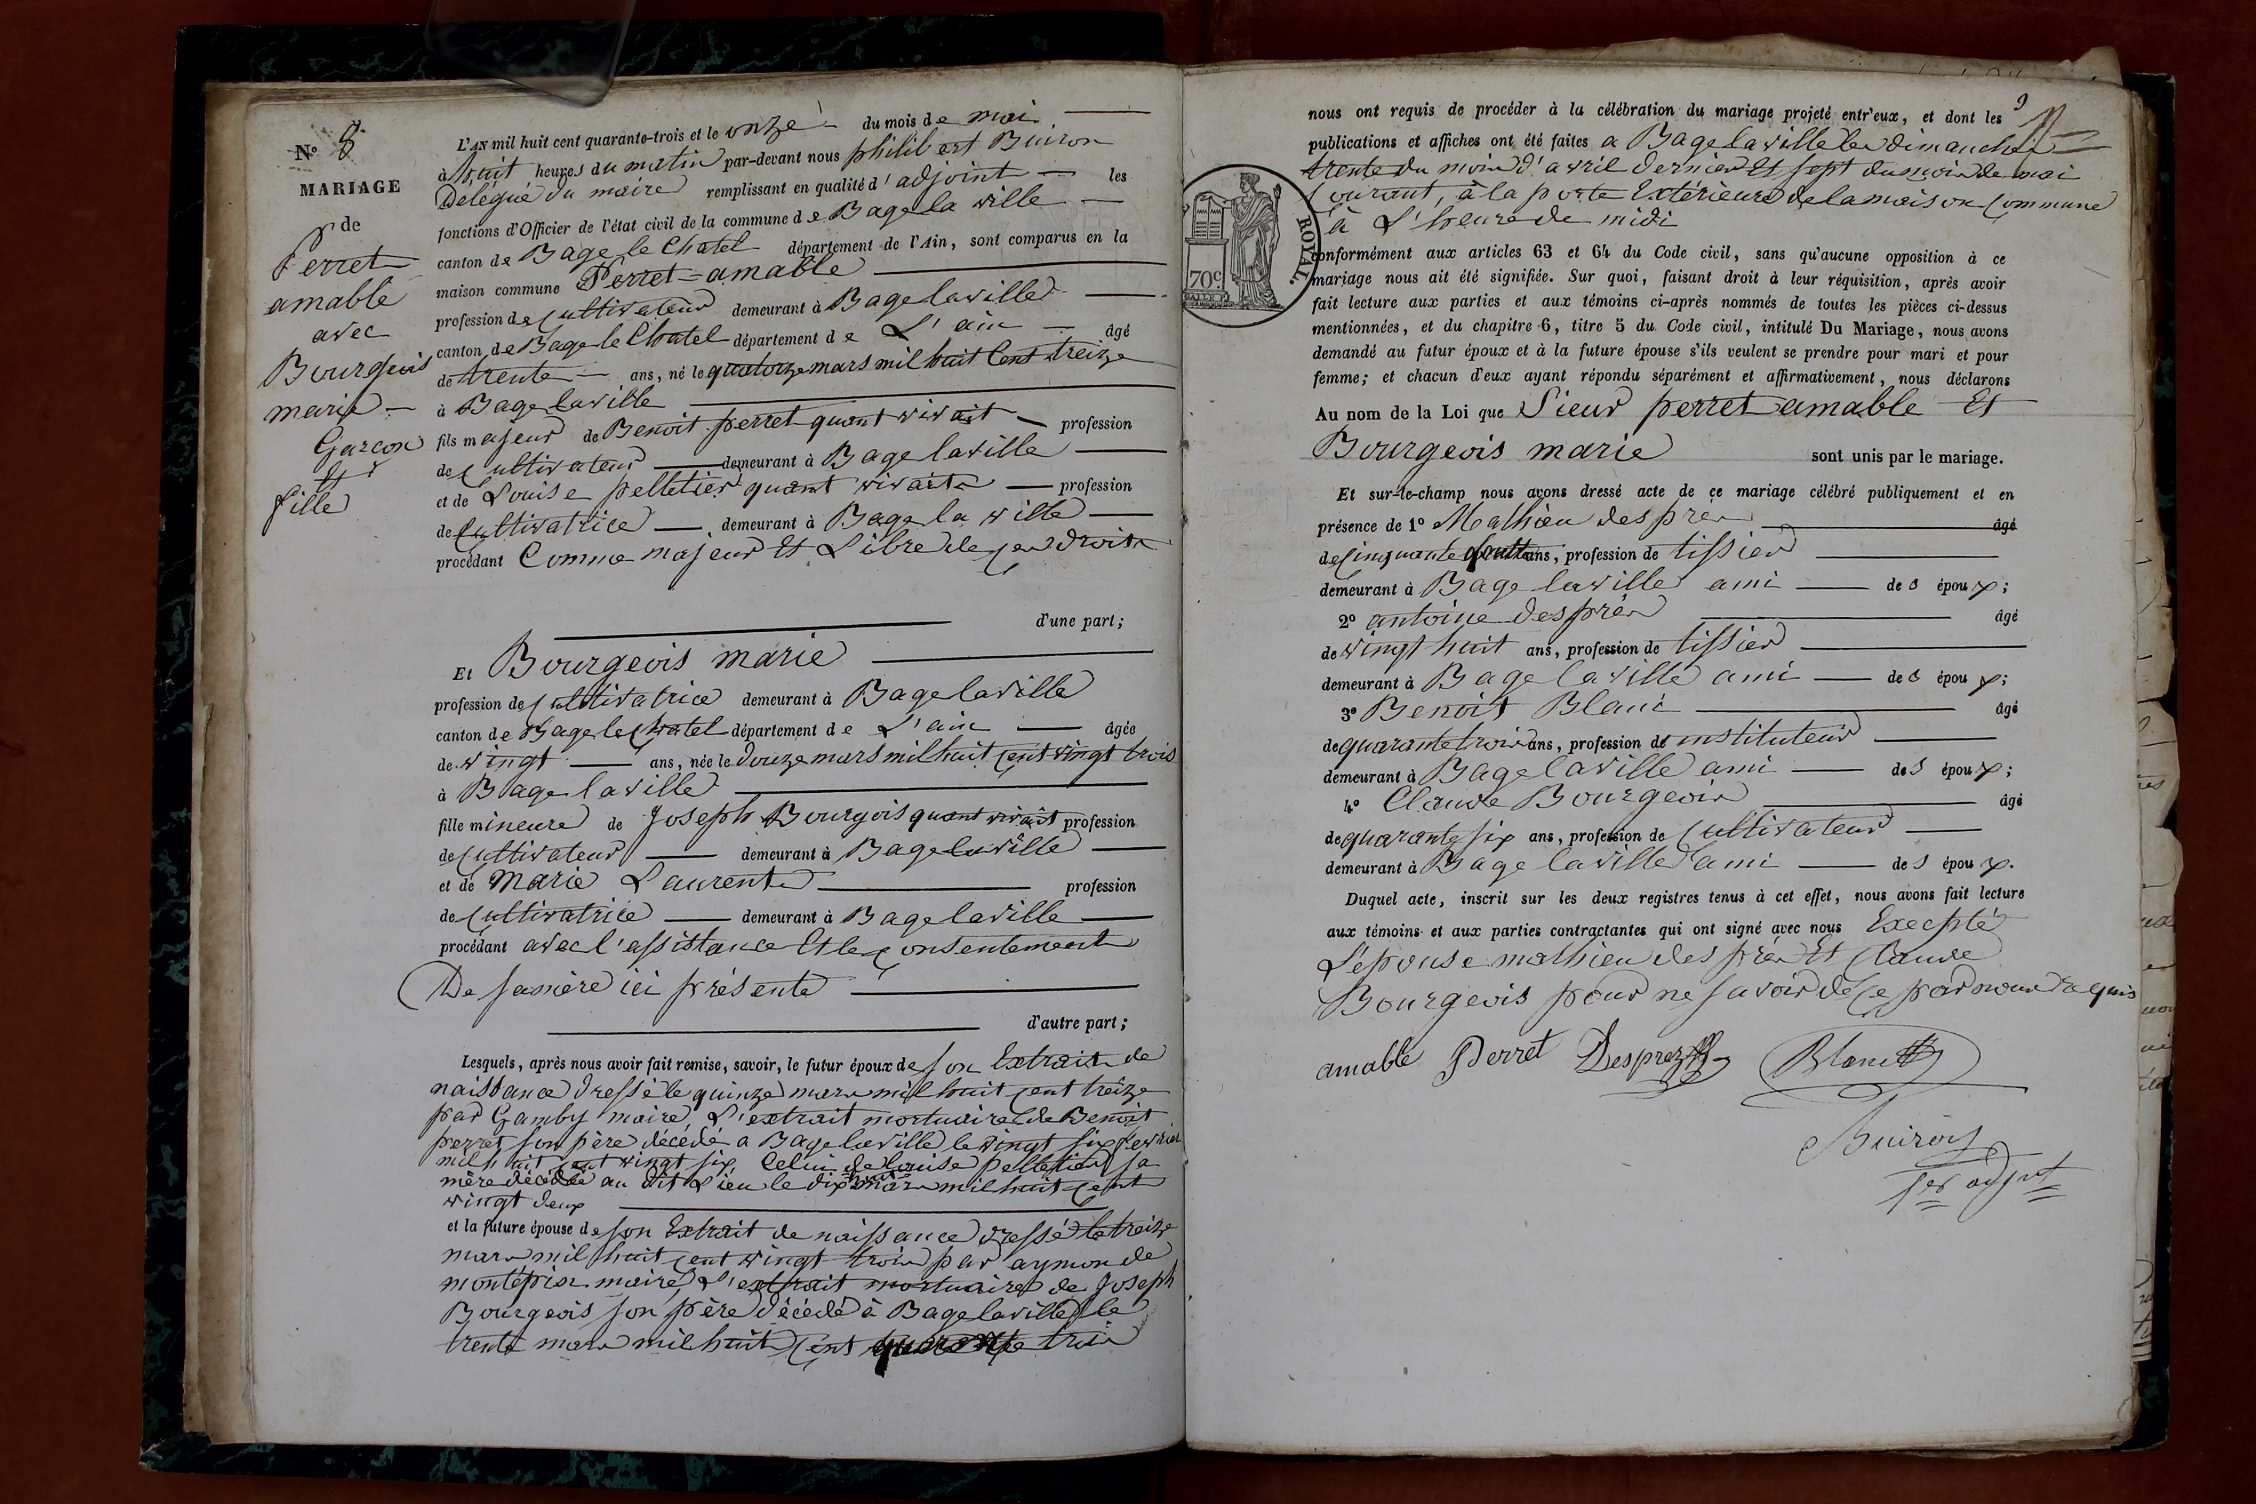 N.º 8
MARIAGE
de
Perret
amable
avec
Bourgeois
marie
Garçon
Et
fille
L'AN mil huit cent quarante-trois et le onze du mois de mai
à huit heures du matin par-devant nous philibert Buiron
Délégué du maire remplissant en qualité d'adjoint les
fonctions d'Officier de l'état civil de la commune de Bage la ville
canton de Bage le Chatel département de l'Ain, sont comparus en la
maison commune Perret amable
profession de Cultivateur demeurant à Bage laville
canton de Bage le Chatel département de L'ain âgé
de trente ans, né le quatorze mars mil huit Cent treize
à Bage laville
fils majeur de Benoit perret quant vivait profession
de Cultivateur demeurant à Bage laville
et de Louise pelletier quant vivait profession
de Cultivatrice demeurant à Bage la ville
procédant Comme majeur Et Libre de ses droits
d'une part;
Et Bourgeois marie
profession de Cultivatrice demeurant à Bage laville
canton de Bage le Chatel département de L'ain âgée
de vingt ans, née le Douze mars mil huit Cent vingt trois
à Bage laville
fille mineure de Joseph Bourgois quant vivait profession
de Cultivateur demeurant à Bage laville
et de Marie Laurent profession
de Cultivatrice demeurant à Bage laville
procédant avec l'assistance Et le Consentement
De sa mère ici présente
d'autre part;
Lesquels, après nous avoir fait remise, savoir, le futur époux de son Extrait de
naissance Dressé le quinze mars mil huit Cent treize
par Gamby maire, L'extrait mortuaire de Benoit
perret son père décédé a Bage laville le vingt six fevrier
mil huit cent vingt six, Celui de louise pelletier sa
mère décédée au dit Lieu le dix huit mars mil huit Cent
vingt deux
et la future épouse de son Extrait de naissance Dressé le treize
mars mil huit Cent vingt trois par aymon de
montépin maire, L'extrait mortuaire de Joseph
Bourgeois son père Décédé à Bage laville le
trente mars mil huit Cent quarante trois
9
nous ont requis de procéder à la célébration du mariage projeté entr'eux, et dont les
publications et affiches ont été faites a Bage laville les dimanches
trente du mois d'avril dernier Et sept du mois de mai
Courant, à la porte Extérieure de la maison Commune
à L'heure de midi
ROYAL.
70c.
conformément aux articles 63 et 64 du Code civil, sans qu'aucune opposition à ce
mariage nous ait été signifiée. Sur quoi, faisant droit à leur réquisition, après avoir
fait lecture aux parties et aux témoins ci-après nommés de toutes les pièces ci-dessus
mentionnées, et du chapitre 6, titre 5 du Code civil, intitulé Du Mariage, nous avons
demandé au futur époux et à la future épouse s'ils veulent se prendre pour mari et pour
femme; et chacun d'eux ayant répondu séparément et affirmativement, nous déclarons
Au nom de la Loi que Sieur perret amable Et
Bourgeois marie sont unis par le mariage.
Et sur-le-champ nous avons dressé acte de ce mariage célébré publiquement et en
présence de 1º Mathieu després âgé
de Cinquante ans, profession de tissier
demeurant à Bage laville ami des époux;
2º antoine després âgé
de vingt huit ans, profession de tissier
demeurant à Bage laville ami des époux;
3º Benoit Blanc âgé
de quarante trois ans, profession de instituteur
demeurant à Bage laville ami des époux;
4º Claude Bourgeois âgé
de quarante six ans, profession de Cultivateur
demeurant à Bage laville ami des époux.
Duquel acte, inscrit sur les deux registres tenus à cet effet, nous avons fait lecture
aux témoins et aux parties contractantes qui ont signé avec nous Excepté
L'épouse mathieu després Et Claude
Bourgeois pour ne savoir de ce par nous requis
amable Perret Desprez Blanc
Buiron
1er adjoint